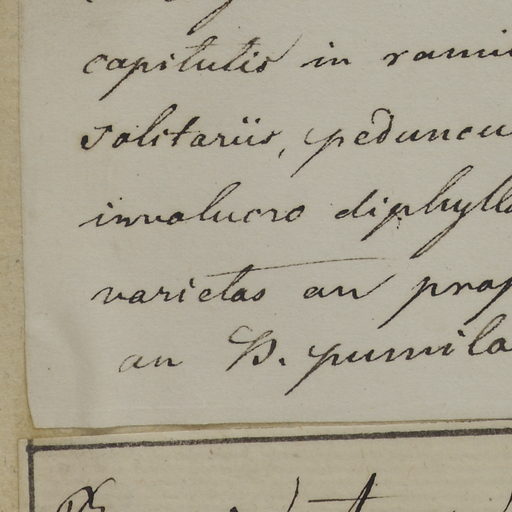 capitulis in rami
solitariis, peduncu
involucro diphyll
varietas an prop
an P. pumila